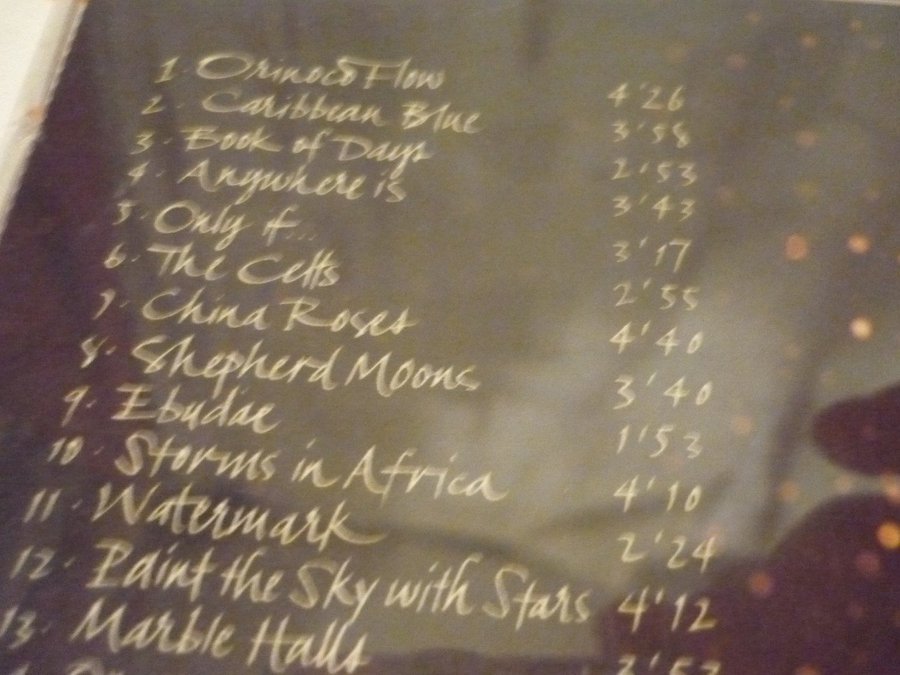 1. Orinoco Flow 4'26
2. Caribbean Blue 3'58
3. Book of Days 2'53
4. Anywhere is 3'43
5. Only if... 3'17
6. The Celts 2'55
7. China Roses 4'40
8. Shepherd Moons 3'40
9. Ebudae 1'53
10. Storms in Africa 4'10
11. Watermark 2'24
12. Paint the Sky with Stars 4'12
13. Marble Halls